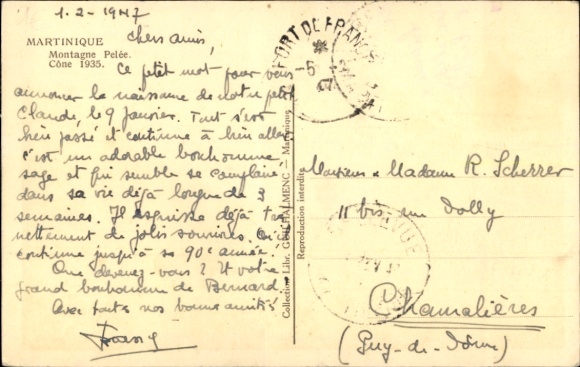 1-2-1947
MARTINIQUE
Montagne Pelée.
Cône 1935.
Chers amis,
Ce petit mot pour vous
annoncer la naissance de notre petit
Claude, le 9 janvier. Tout s'est
bien passé et continue à bien aller
c'est un adorable bonhomme
sage et qui semble se complaire
dans sa vie déjà longue de 3
semaines. Il esquisse déjà très
nettement de jolis sourires. Qu'il
continue jusqu'à sa 90e année.
Que devenez-vous ? Et votre
grand bonhomme de Bernard.
Avec toutes nos bonnes amitiés
Collection Libr. GUILHALMENC - Martinique
Reproduction interdite
FORT DE FRANCE
-5
Monsieur & Madame R. Scherrer
11 bis rue Dolly
Chamalières
(Puy-de-Dôme)